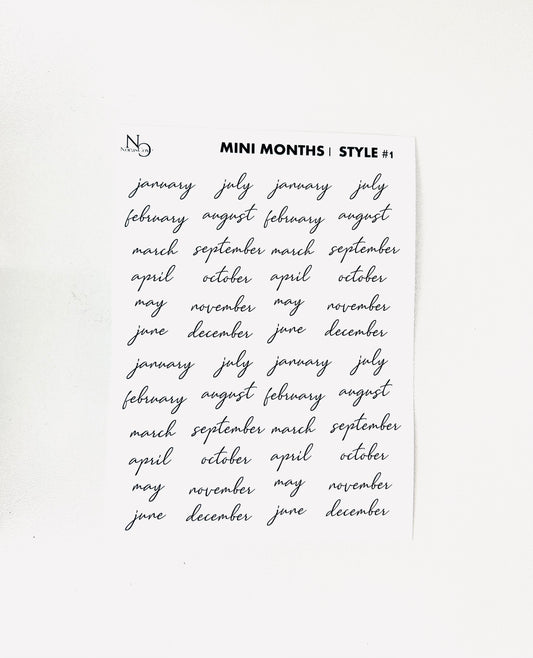 NC
MINI MONTHS | STYLE #1
january july january july
february august february august
march september march september
april october april october
may november may november
june december june december
january july january july
february august february august
march september march september
april october april october
may november may november
june december june december